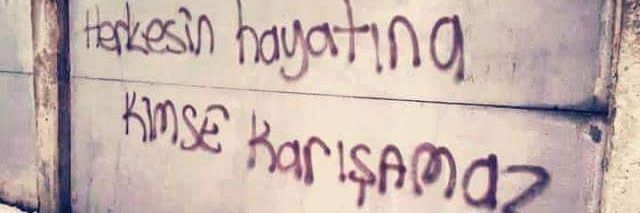 Herkesin hayatına
KİMSE KarışAMaz